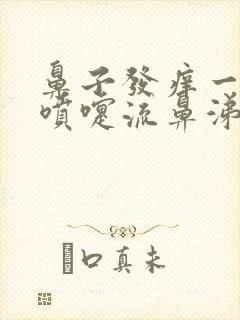 鼻子發痒一
噴嚏流鼻涕
口真未